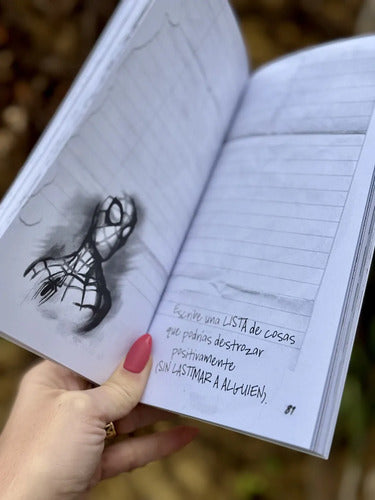 Escribe una LISTA de cosas
que podrías destrozar
positivamente
(SIN LASTIMAR A ALGUIEN).
81